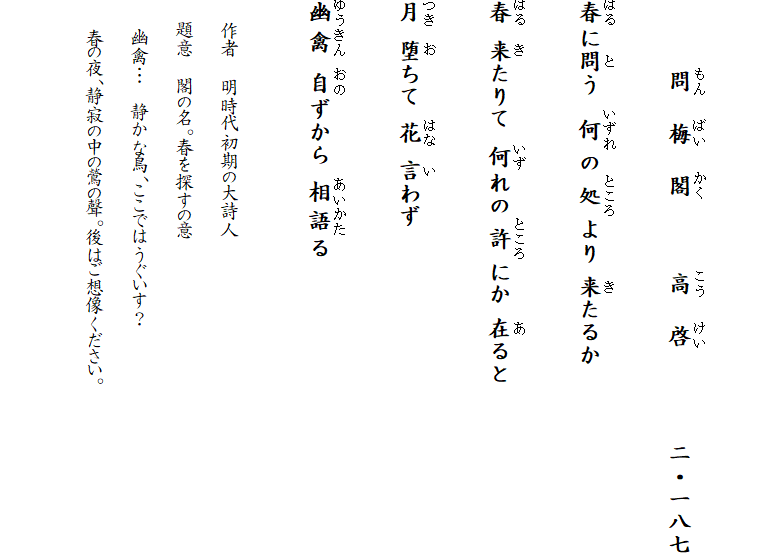 問梅閣 高啓 二・一八七
春に問う 何の処より来たるか
春来たりて 何れの許にか在ると
月堕ちて 花言わず
幽禽 自ずから 相語る
作者 明時代初期の大詩人
題意 閣の名。春を探すの意
幽禽… 静かな鳥、ここではうぐいす？
春の夜、静寂の中の鶯の聲。後はご想像ください。